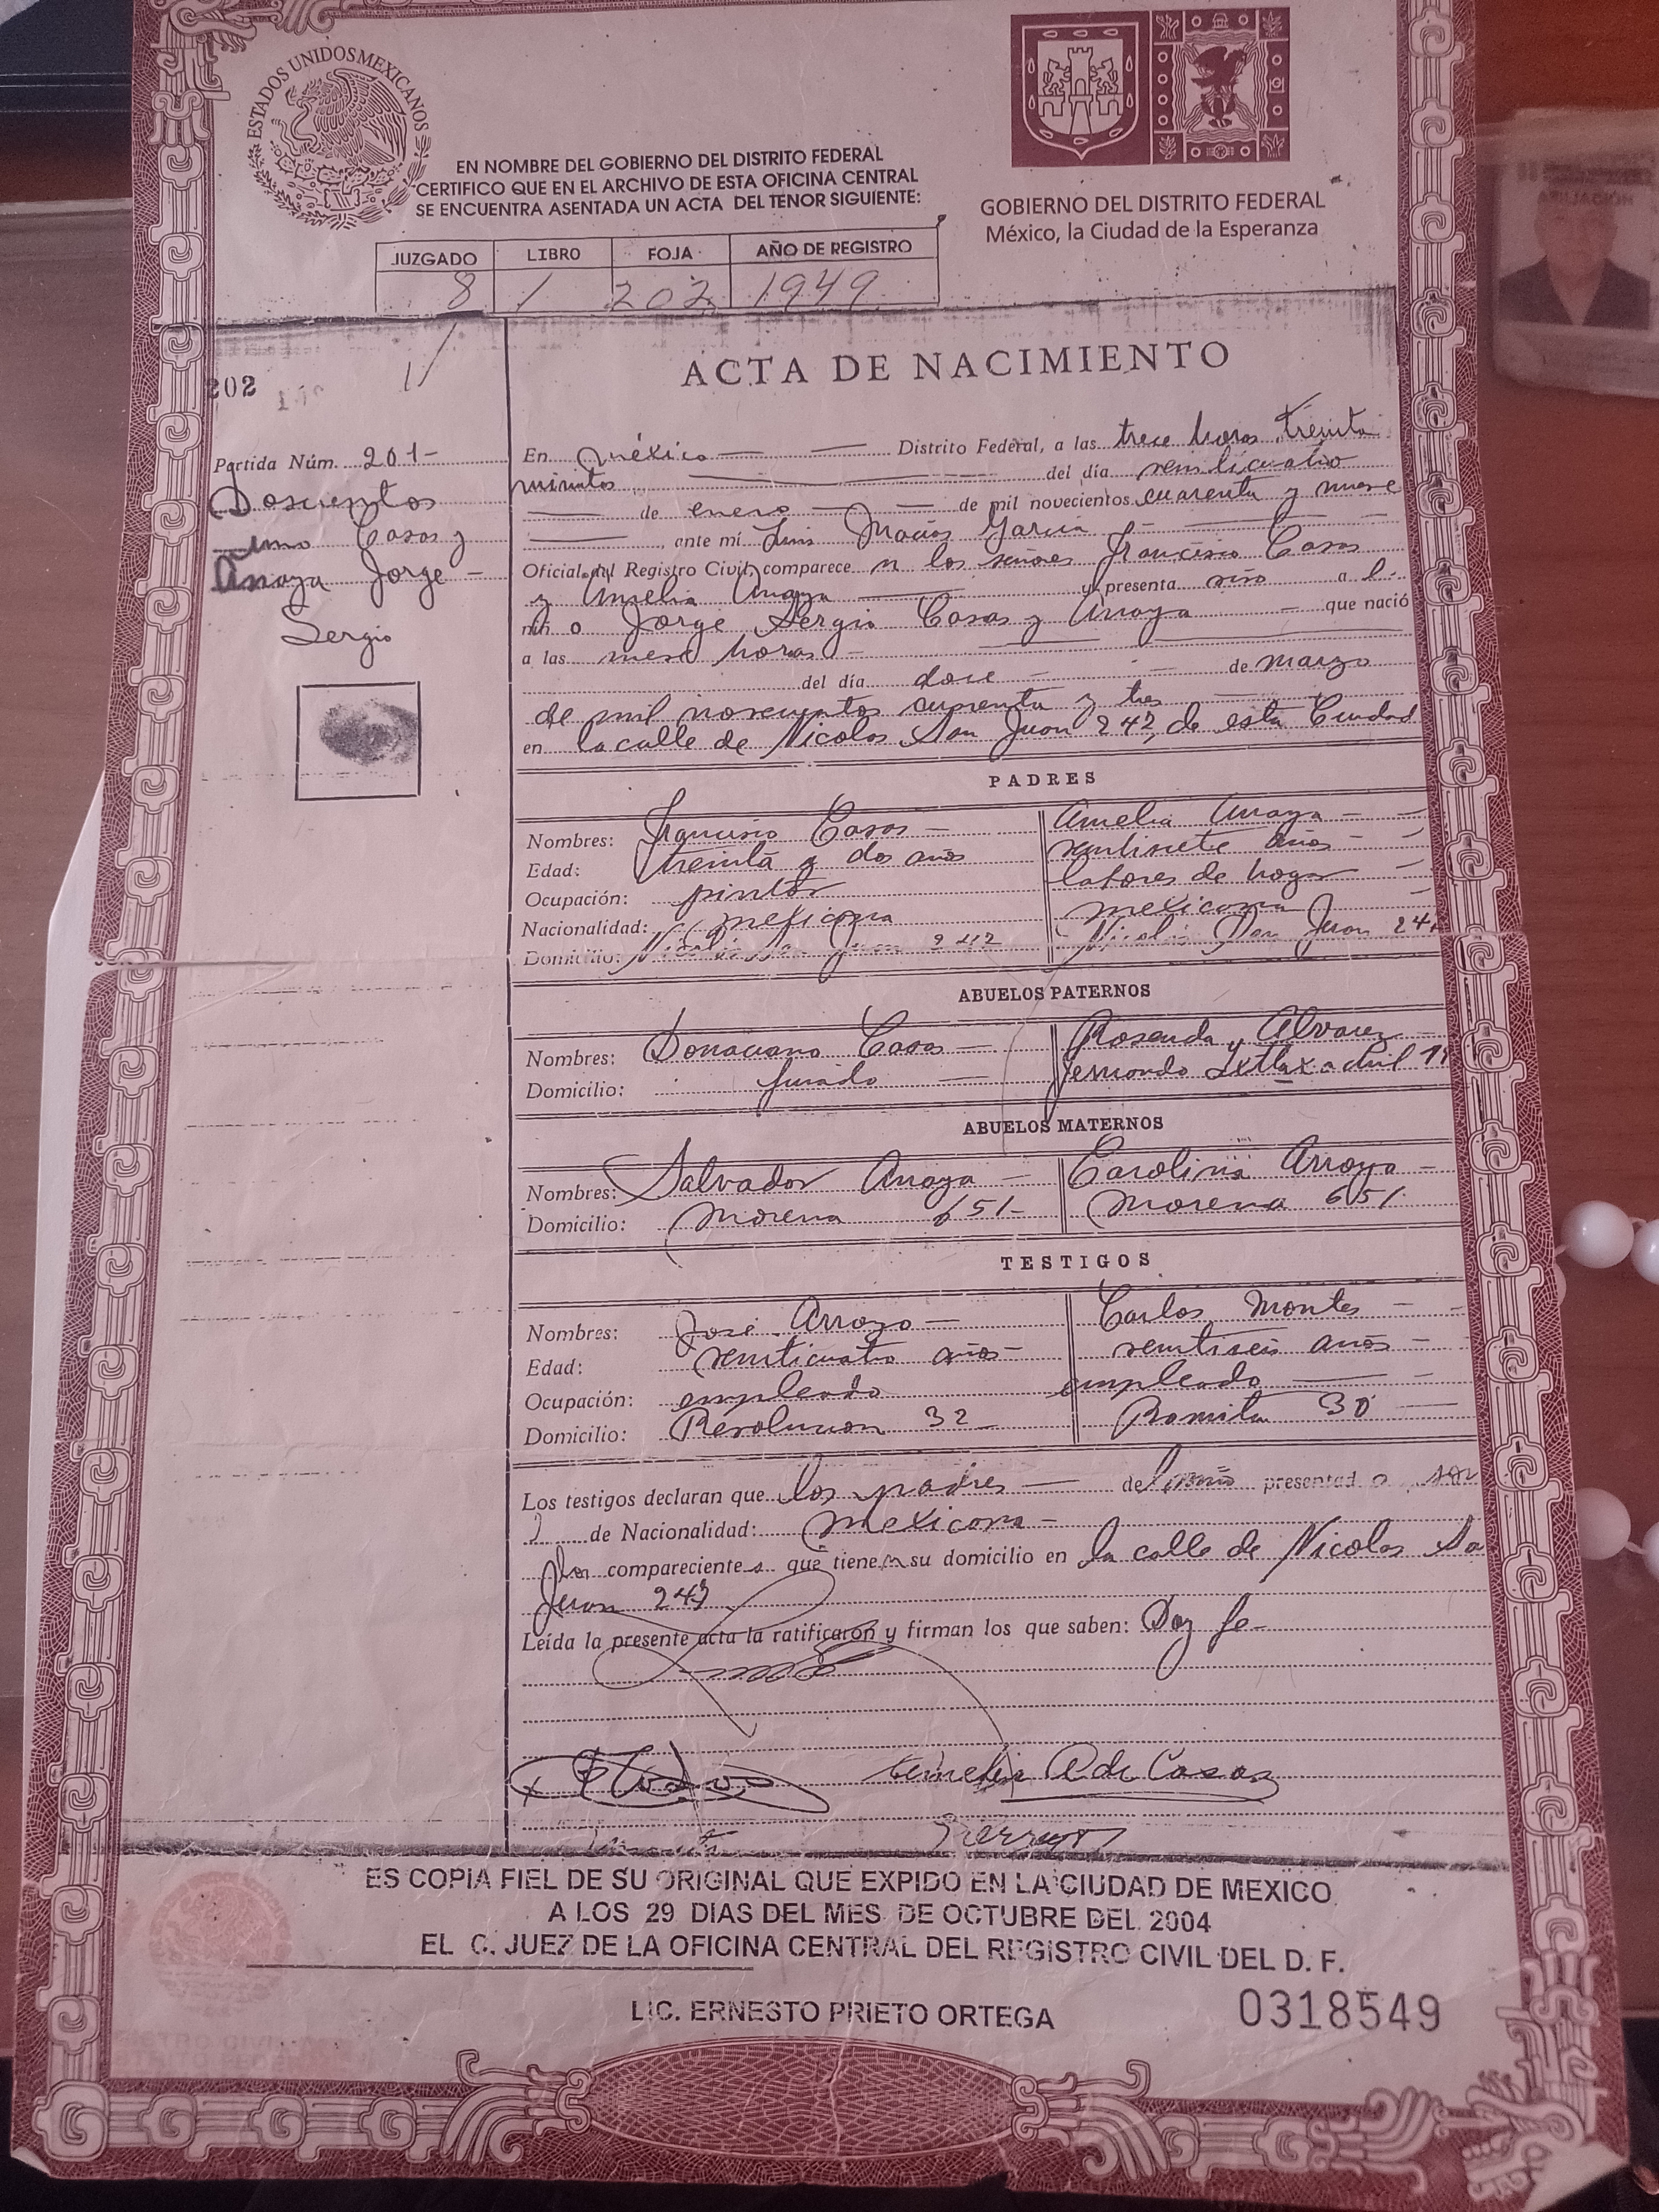 ESTADOS UNIDOS MEXICANOS
EN NOMBRE DEL GOBIERNO DEL DISTRITO FEDERAL
CERTIFICO QUE EN EL ARCHIVO DE ESTA OFICINA CENTRAL
SE ENCUENTRA ASENTADA UN ACTA DEL TENOR SIGUIENTE:
GOBIERNO DEL DISTRITO FEDERAL
México, la Ciudad de la Esperanza
JUZGADO LIBRO FOJA AÑO DE REGISTRO
8 1 202 1949
202
ACTA DE NACIMIENTO
Partida Núm. 201-
Doscientos
uno Casas y
Anaya Jorge -
Sergio
En méxico Distrito Federal, a las trece horas treinta
minutos del día veinticuatro
de enero de mil novecientos cuarenta y nueve
, ante mí Luis Macías García
Oficial del Registro Civil, comparecen los señores Francisco Casas
y Amelia Anaya y presenta niño a l
niño Jorge Sergio Casas y Anaya que nació
a las nueve horas
del día doce de marzo
de mil novecientos cuarenta y tres
en la calle de Nicolas San Juan 247, de esta Ciudad
PADRES
Nombres: Francisco Casas - Amelia Anaya -
Edad: treinta y dos años veintisiete años
Ocupación: pintor labores de hogar
Nacionalidad: mexicana mexicana
Domicilio: Nicolás San Juan Nicolás San Juan
ABUELOS PATERNOS
Nombres: Donaciano Casas - Rosenda Alvarez
Domicilio: finado -
ABUELOS MATERNOS
Nombres: Salvador Anaya - Carolina Arroyo -
Domicilio: Morena 651- Morena 651
TESTIGOS
Nombres: José Arroyo - Carlos Montes -
Edad: veinticuatro años veintiseis años
Ocupación: empleado empleado
Domicilio: Revolucion 32 Romita 30
Los testigos declaran que los padres - del niño presentado son
de Nacionalidad: mexicana -
los comparecientes que tienen su domicilio en la calle de Nicolas Sa
Juan 247
Leída la presente acta la ratificaron y firman los que saben: Doy fe-
Amelia A de Casas
ES COPIA FIEL DE SU ORIGINAL QUE EXPIDO EN LA CIUDAD DE MEXICO
A LOS 29 DIAS DEL MES DE OCTUBRE DEL 2004
EL C. JUEZ DE LA OFICINA CENTRAL DEL REGISTRO CIVIL DEL D. F.
LIC. ERNESTO PRIETO ORTEGA
0318549